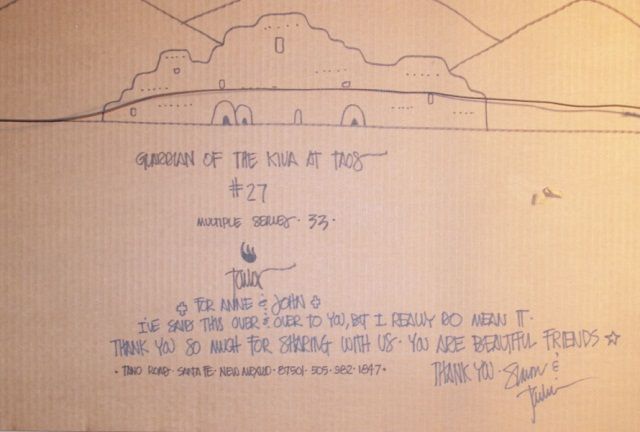 GUARDIAN OF THE KIVA AT TAOS
#27
MULTIPLE SERIES · 33 ·
FOR ANNE & JOHN
I'VE SAID THIS OVER & OVER TO YOU, BUT I REALLY DO MEAN IT ·
THANK YOU SO MUCH FOR SHARING WITH US · YOU ARE BEAUTIFUL FRIENDS ☆
· TANO ROAD · SANTA FE · NEW MEXICO · 87501 · 505 · 982 · 1847 ·
THANK YOU ·
&